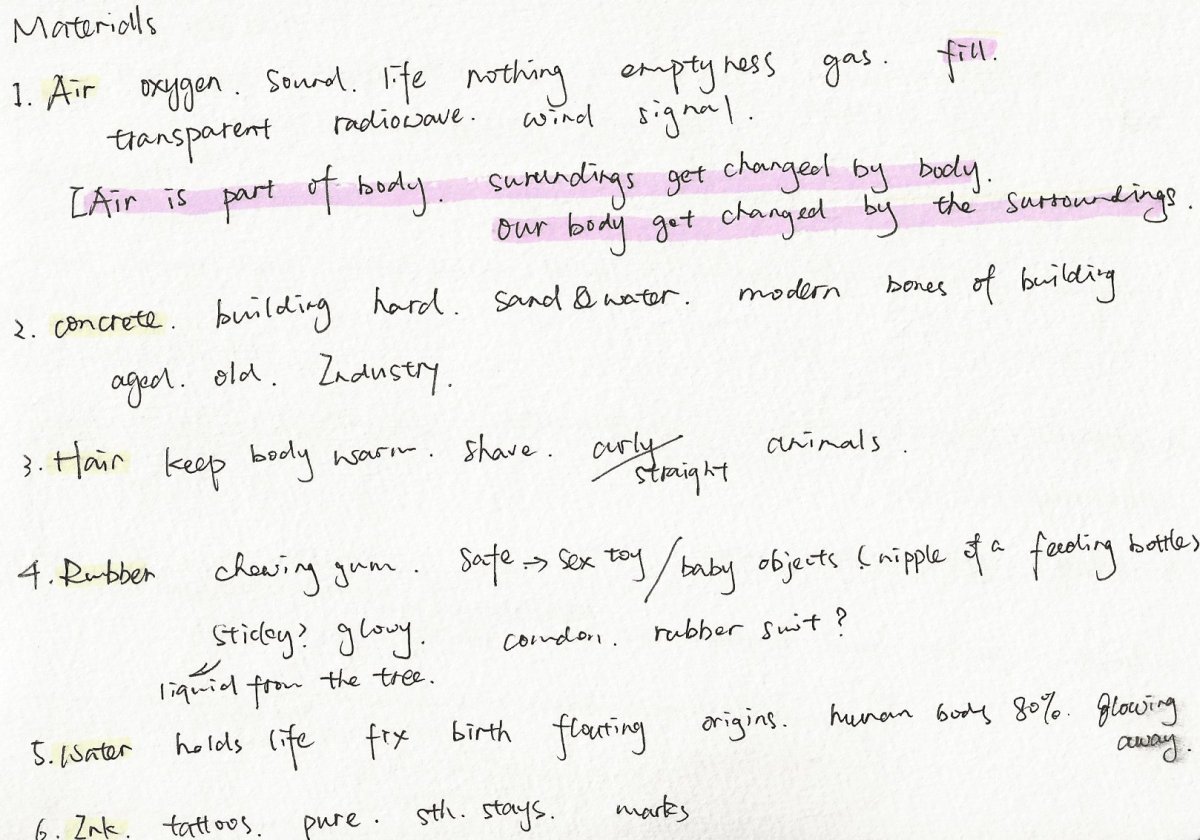 Materialls
1. Air oxygen. sound. life nothing emptyness gas. fill.
transparent radiowave. wind signal.
[Air is part of body. surundings get changed by body.
our body get changed by the surroundings.
2. concrete. building hard. sand & water. modern bones of building
aged. old. Industry.
3. Hair keep body warm. shave. curly / straight animals.
4. Rubber chewing gum. safe → sex toy / baby objects (nipple of a feeding bottle)
sticky? glowy. comdon. rubber suit?
liquid from the tree.
5. Water holds life fix birth floating origins. human body 80%. flowing
away.
6. Ink. tattoos. pure. sth. stays. marks